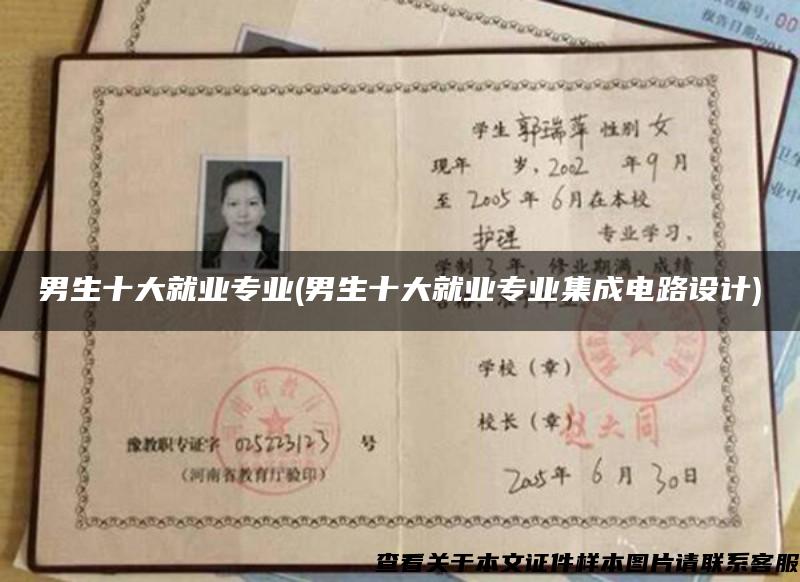 告编号：00
报告日期
学生 郭瑞萍 性别 女
现年 岁，2002 年 9 月
至 2005 年 6 月在本校
护理 专业学习，
学制 3 年，修业期满，成绩
男生十大就业专业(男生十大就业专业集成电路设计)
学校（章）
校长（章）赵大同
2005 年 6 月 30 日
豫教职专证字 025223123 号
（河南省教育厅验印）
查看关于本文证件样本图片请联系客服